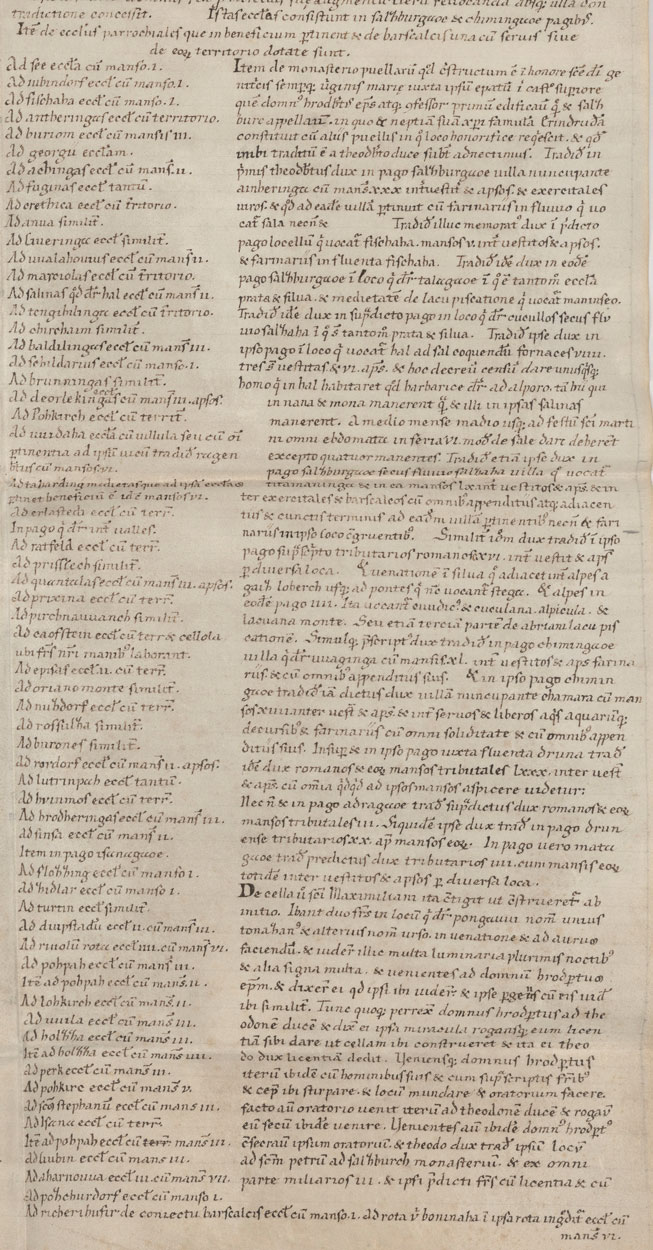 tradictione concesit. Istas eccłas consistunt in salzburgaoe & chimingaoe pagibus.
Ite de eccliis parrochiales que in beneficium ptinent & de barscalcis una cū servis sive
de eoꝝ territorio dotate sunt.
Ad see eccła cū manso .I.
Ad nubindorf eccł cū manso .I.
Ad fischaha eccł cū manso .I.
Ad antheringas eccł cū territorio.
Ad buriom eccł cū mansis III.
Ad georgii eccłam.
Ad achingas eccł cū mans II.
Ad fuginas eccł tantū.
Ad orethica eccł cū tritorio.
Ad anua similit.
Ad liueringa eccł similit.
Ad uualahouius eccł cū mans II.
Ad marciolas eccł cū tritorio.
Ad salinas qd dr hal eccł cū mans II.
Ad tengihilinga eccł cū tritorio.
Ad chirchaim similit.
Ad baldilingas eccł cū mans III.
Ad schildarius eccł cū manso .I.
Ad brunningas similit.
Ad deorlekingas eccł cū mans III. apsos.
Ad Pohkirch eccł cū territ.
Ad uuidaha eccłā cū uillula seu cū oi
ptinentia ad ipsū uicū tradid
Ad taharding medietas que ad ipsā eccłam
ptinet beneficiū ē id ē mansos VI.
Ad erlastedi eccł cū terr.
In pago q dr int ualles.
Ad ratfeld eccł cū terr.
Ad prisslech similit.
Ad quantalas eccł cū mans III. apsos.
Ad prixina eccł cū terr.
Ad pirchnauuanch similit.
Ad caofstein eccł cū terr & cellola
ubi frs nri manib laborant.
Ad episas eccł II. cū terr.
Ad oriano monte similit.
Ad nuzdorf eccł cū terr.
Ad rossulza similit.
Ad burones similit.
Ad rordorf eccł cū mans II. apsos.
Ad lutrinpah eccł tantū.
Ad hrinmos eccł cū terr.
Ad brodheringas eccł cū mans III.
Ad sinsa eccł cū mans II.
Item in pago isanagaoe.
Ad flozzing eccł cū manso I.
Ad hidlar eccł cū manso I.
Ad turtin eccł similit.
Ad diupstadū eccł II. cū mans III.
Ad riuolū rota eccł III. cū mans VI.
Ad pohpah eccł cū mans III.
Ite ad pohpah eccł cū mans II.
Ad lohkirch eccł cū mans II.
Ad uuila eccł cū mans III.
Ad holzza eccł cū mans III.
Ite ad holzza eccł cū mans IIII.
Ad perk eccł cū mans III.
Ad pohkirc eccł cū mans V.
Ad scm stephanū eccł cū mans III.
Ad Isana eccł cū terr.
Ite ad pohpah eccł cū terr mans III.
Ad liubin eccł cū mans III.
Ad aharnouua eccł III. cū mans VII.
Ad pohchurdorf eccł cū manso .I.
Ad richeribusir de coniectu barscalcis eccł cū manso .I. ad rota ł boninaha ī ipsa rota ingdit eccł cū
mans VI.
Item de monasterio puellarū qd cstructum ē ī honore sce di ge
nitricis sempq uginis marie iuxta ipsū epatū ī castro supiore
que domn hrodbtus eps atq cfessor primū edificauit & salz
burc appellauit. in quo & neptiā suā xpi famulā Erindrudā
constituit cū aliis puellis in q loco honorifice reqescit. & qd
inibi traditū ē a theodbto duce subt adnectimus. Tradid in
primis theodbtus dux in pago salzburgaoe uilla nuncupante
ainheringa cū mans XXX int uestit & apsos. & exercitales
uiros. & qd ad eadē uillā ptinuit cū farinariis in fluuio q uo
cat sala necn & Tradid illuc memorat dux ī pdicto
pago locellū q uocat fischaha. mansos V. int uestitos & apsos.
& farinariis in fluenta fischaha. Tradid idē dux in eodē
pago salzburgaoe ī loco q dr talagaoe ī q ē tantom eccła
prata & silua. & medietatē de lacu piscatione q uocat maninseo.
Tradid idē dux in supdicto pago in loco q dr cucullos secus flu
uio salzaha ī q s tantom prata & silua. Tradid ipse dux in
ipso pago ī loco q uocat hal ad sal coquendū fornaces VIIII.
tres s uestitas & VI. aps. & hoc decreū censū dare unusqsq
homo q in hal habitaret qd barbarice dr. ad alporo. ta hu qui
in nana & mona manerent q & illi in ipsas salinas
manerent. A medio mense madio usq ad festū sci marti
ni omni ebdomata in feria VI. mod de sale dare deberet
excepto quatuor manentes. Tradid etiā ipse dux in
pago salzburgaoe secus fluuio salzaha uilla q uocat
titamaninga & in ea mansos LX int uestitos & aps. & in
ter exercitales & barscalcos cū omnib appenditiis atq adiacen
tiis & cunctis terminis ad eadm uillā ptinentib necn & fari
nariis in ipso loco cgruentib. Similit idm dux tradid ī ipso
pago supscpto tributarios romanos CXVI. int uestit & aps
p diuersa loca. & uenationē ī silua q adiacet int alpes a
gaizloberch usq ad pontes q nc uocant stega. & alpes in
eodē pago IIII. Ita uocant cuudic & cuculana. alpicula. &
lacuana monte. Seu etiā terciā partē de abriani lacu pis
cationē. Simulq pscript dux tradid in pago chimingaoe
uilla q dr uuaginga cū mansis XL. int uestitos & aps farina
riis & cū omnib appenditiis suis. & in ipso pago chimin
gaoe tradid iā dictus dux uillā nuncupante ohamara cū man
sos XVI inter uest & aps. & int seruos & liberos aqs aquarūq
decursib & farinariis cū omni soliditate & cū omnib appen
ditiis suis. Insup & in ipso pago iuxta fluenta druna trad
idē dux romanos & eoꝝ mansos tributales LXXX. inter uest
& aps. cū omia qdqd ad ipsos mansos aspicere uidetur:
Nec n & in pago adragaoe trad supdictus dux romanos & eoꝝ
mansos tributales III. Siquidē ipse dux trad in pago drun
ense tributarios XX. ap mansos eoꝝ. In pago uero matu
gaoe trad predictus dux tributarios IIII. cum mansis eoꝝ
totidē inter uestitos & apsos p diuersa loca.
De cella ū sci Maximiliani ita ctigit ut cstrueret ab
initio. Ibant duo frs in locū q dr pongauui nom unius
tonazan & alterius nom urso. in uenatione & ad aurū
faciendū. & uider illic multa luminaria plurimis noctib
& alia signa multa. & uenientes ad domnū hrodptum
epm. & dixer ei qd ipsi ibi uider. & ipse pgens cū eis uid
ibi similit. Tunc quoq perrex domnus hrodptus ad the
odonē ducē & dix ei ipsa miracula rogansq eum licen
tiā sibi dare ut cellam ibi construeret & ita ei theo
do dux licentiā dedit. Ueniensq domnus hrodptus
iterū ibidē cū hominibus suis & cum supscriptis frib
& cep ibi stirpare. & locū mundare & oratorium facere.
facto aū oratorio uenit iterū ad theodonē ducē & rogau
eū secū ibidē uenire. Uenientes aū ibidē domn hrodpt
csecrau ipsum oratoriū. & theodo dux trad ipsū locū
ad scm petrū ad salzburch monasteriū. & ex omni
parte miliarios III. & ipsi pdicti frs cū licentia & cū